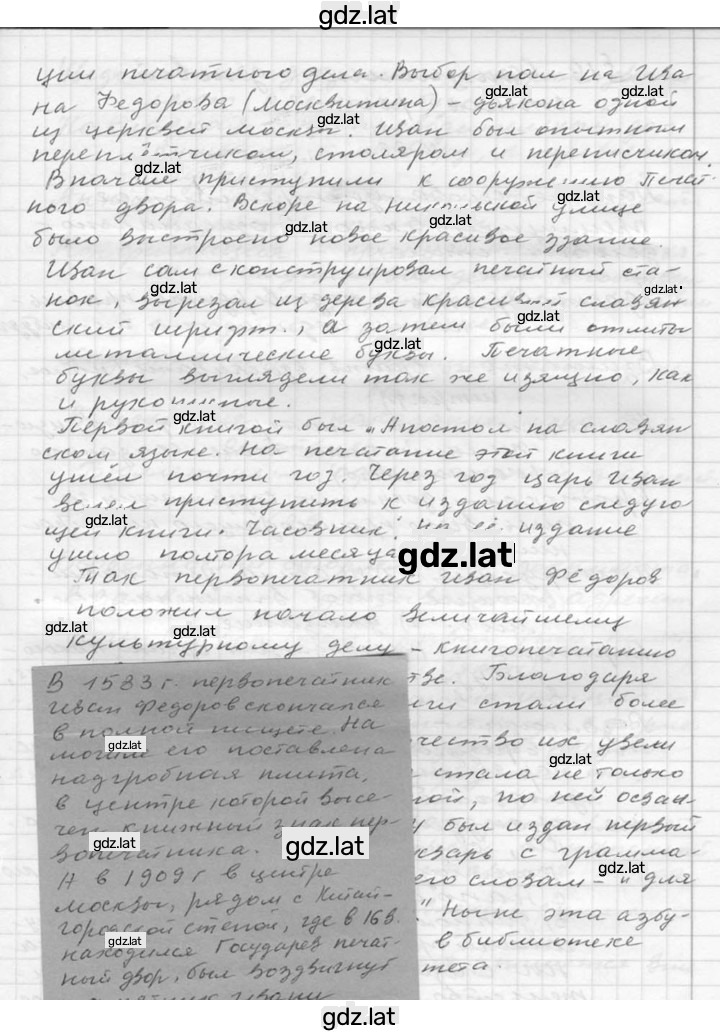 gdz.lat
ции печатного дела. Выбор пал на Ива
на Федорова (Москвитина) – дьякона одной
gdz.lat
gdz.lat
из церквей Москвы. Иван был опытным
gdz.lat
переплётчиком, столяром и переписчиком.
gdz.lat
Вначале приступили к сооружению Печат-
gdz.lat
ного двора. Вскоре на Никольской улице
gdz.lat
gdz.lat
было выстроено новое красивое здание.
Иван сам сконструировал печатный ста-
gdz.lat
gdz.lat
нок, вырезал из дерева красивый славян
gdz.lat
ский шрифт, а затем были отлиты
gdz.lat
металлические буквы. Печатные
буквы выглядели так же изящно, как
и рукописные.
gdz.lat
Первой книгой был „Апостол" на славян
ском языке. На печатание этой книги
gdz.lat
ушёл почти год. Через год царь Иван
велел приступить к изданию следую
gdz.lat
щей книги. Часовник. издание
ушло полтора месяца
gdz.lat
Так первопечатник Иван Фёдоров
положил начало величайшему
gdz.lat
gdz.lat
культурному делу – книгопечатанию
тве. Благодаря
ги стали более
чество их увели
gdz.lat
стала не только
ой, по ней осваи-
у был издан первый
кварь с грамма-
gdz.lat
его словам – „для
." Ныне эта азбу-
в библиотеке
тета.
В 1583 г. первопечатник
Иван Федоров скончался
в полной нищете. На
gdz.lat
могиле его поставлена
надгробная плита,
в центре которой высе-
чен книжный знак пер-
gdz.lat
gdz.lat
вопечатника.
А в 1909 г в центре
Москвы, рядом с Китай-
городской стеной, где в 16 в.
gdz.lat
находился Государев печат-
ный двор, был воздвигнут
памятник Ивану
gdz.lat